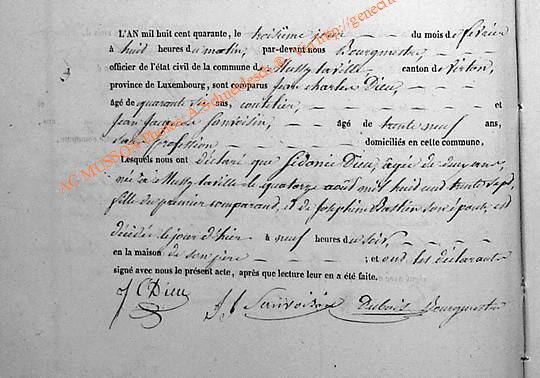 L'AN mil huit cent quarante, le troisième jour du mois de février
à huit heures du matin, par-devant nous Bourgmestre
officier de l'état civil de la commune de Mussy-la-ville canton de Virton,
province de Luxembourg, sont comparus Jean Charles Dieu,
âgé de quarante six ans, coutelier et
Jean Jacques Sanvoisin, âgé de trente neuf ans,
sans profession domiciliés en cette commune,
Lesquels nous ont déclaré que Sidonie Dieu, âgée de deux ans,
née à Mussy-la-ville le quatorze août mil huit cent trente sept,
fille du premier comparant, et de Joséphine Bastin son épouse, est
décédée le jour d'hier à neuf heures du soir,
en la maison de son père ; et ont les déclarants
signé avec nous le présent acte, après que lecture leur en a été faite.
J C Dieu J J Sanvoisin Dubois Bourgmestre
AC MUSSON Photos A. Schneidesch ®
http://genechr